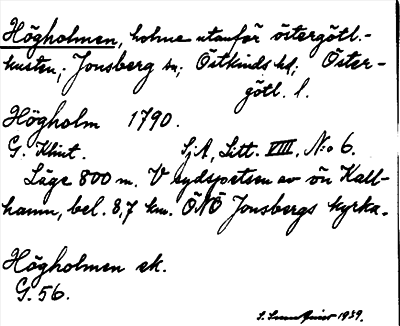 Högholmen, holme utanför östergötl.-
kusten; Jonsberg sn; Östkinds hd; Öster-
götl. l.
Högholm 1790.
G. Klint. SjA, Litt. VIII, No 6.
Läge 800 m. V sydspetsen av ön Kall-
hamn, bel. 8,7 km. ÖNÖ Jonsbergs kyrka.
Högholmen ek.
G. 56.
1939.